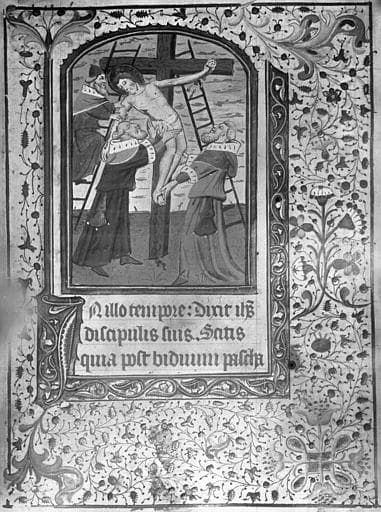 In illo tempore: dixit ihs
discipulis suis. Scitis
quia post biduum pascha